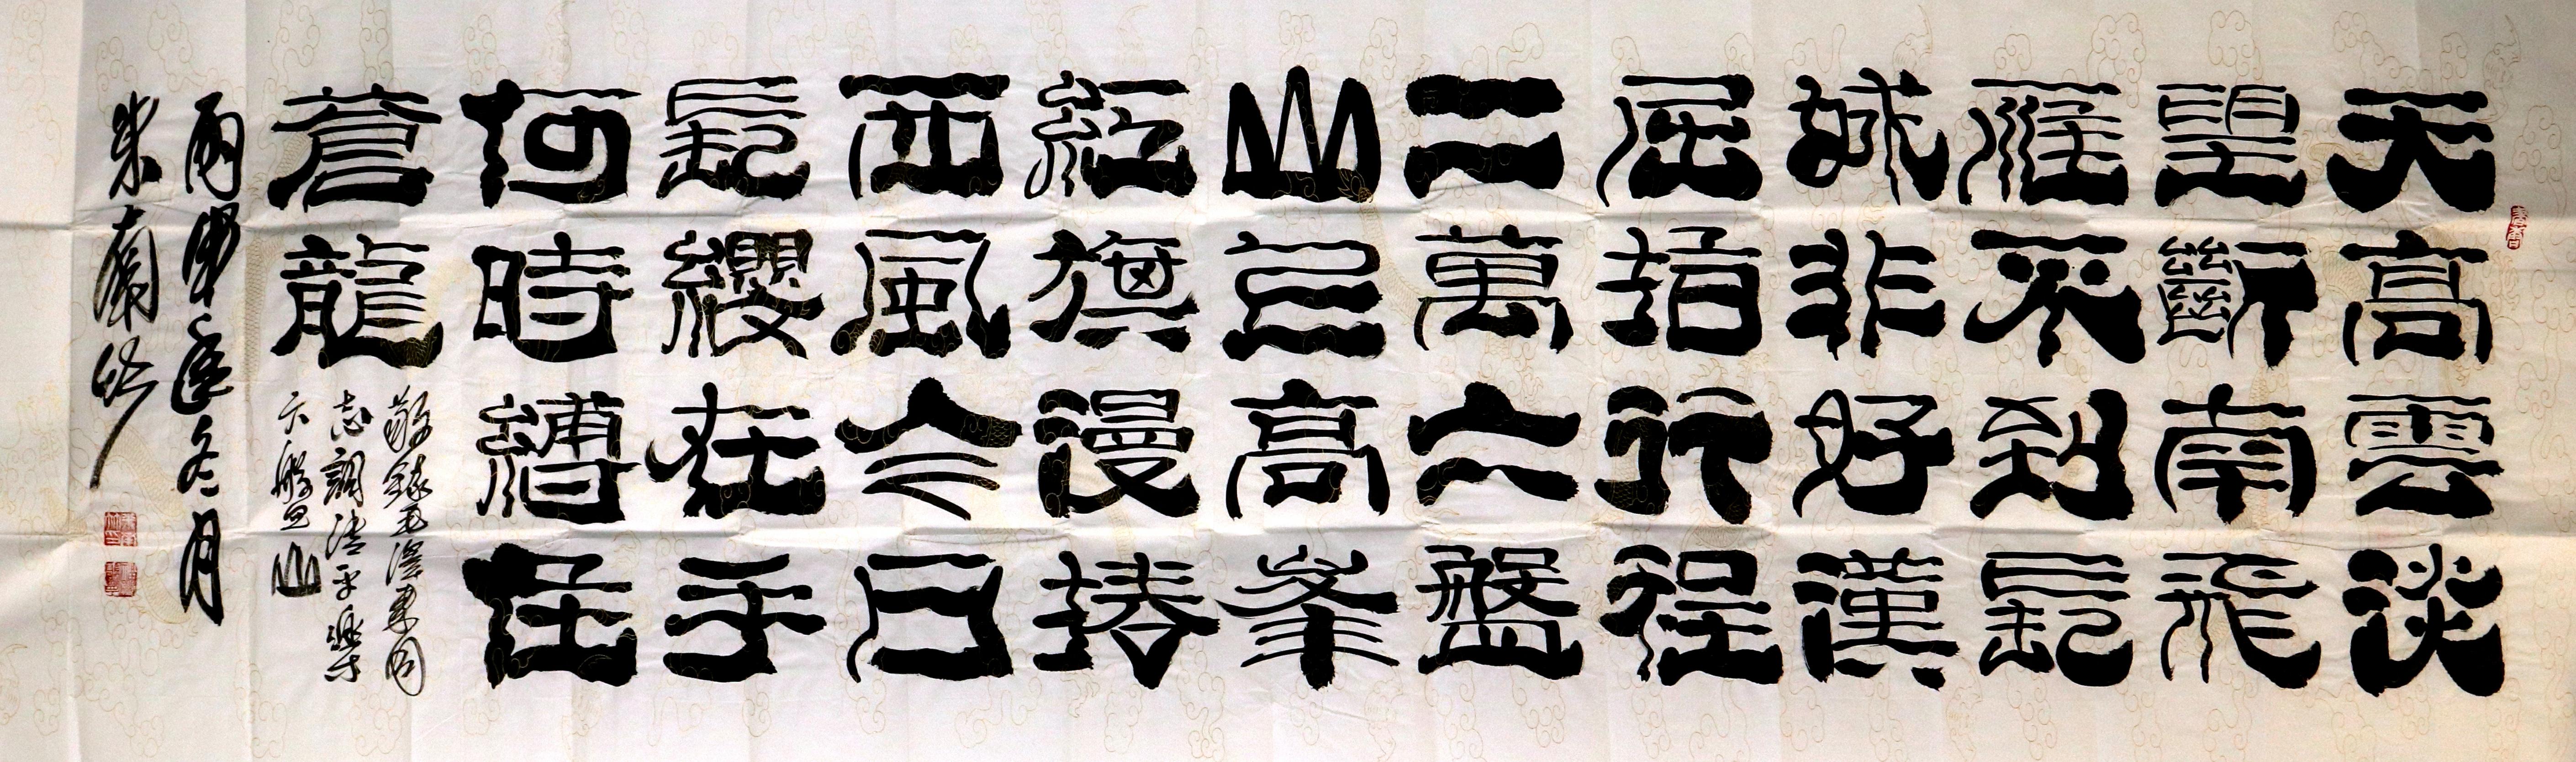 天高雲淡
望斷南飛
雁不到長
城非好漢
屈指行程
二萬六盤
山上高峯
紅旗漫捲
西風今日
長纓在手
何時縛住
蒼龍
敬錄毛澤東同
志調清平樂
六盤山
丙申年冬月
朱